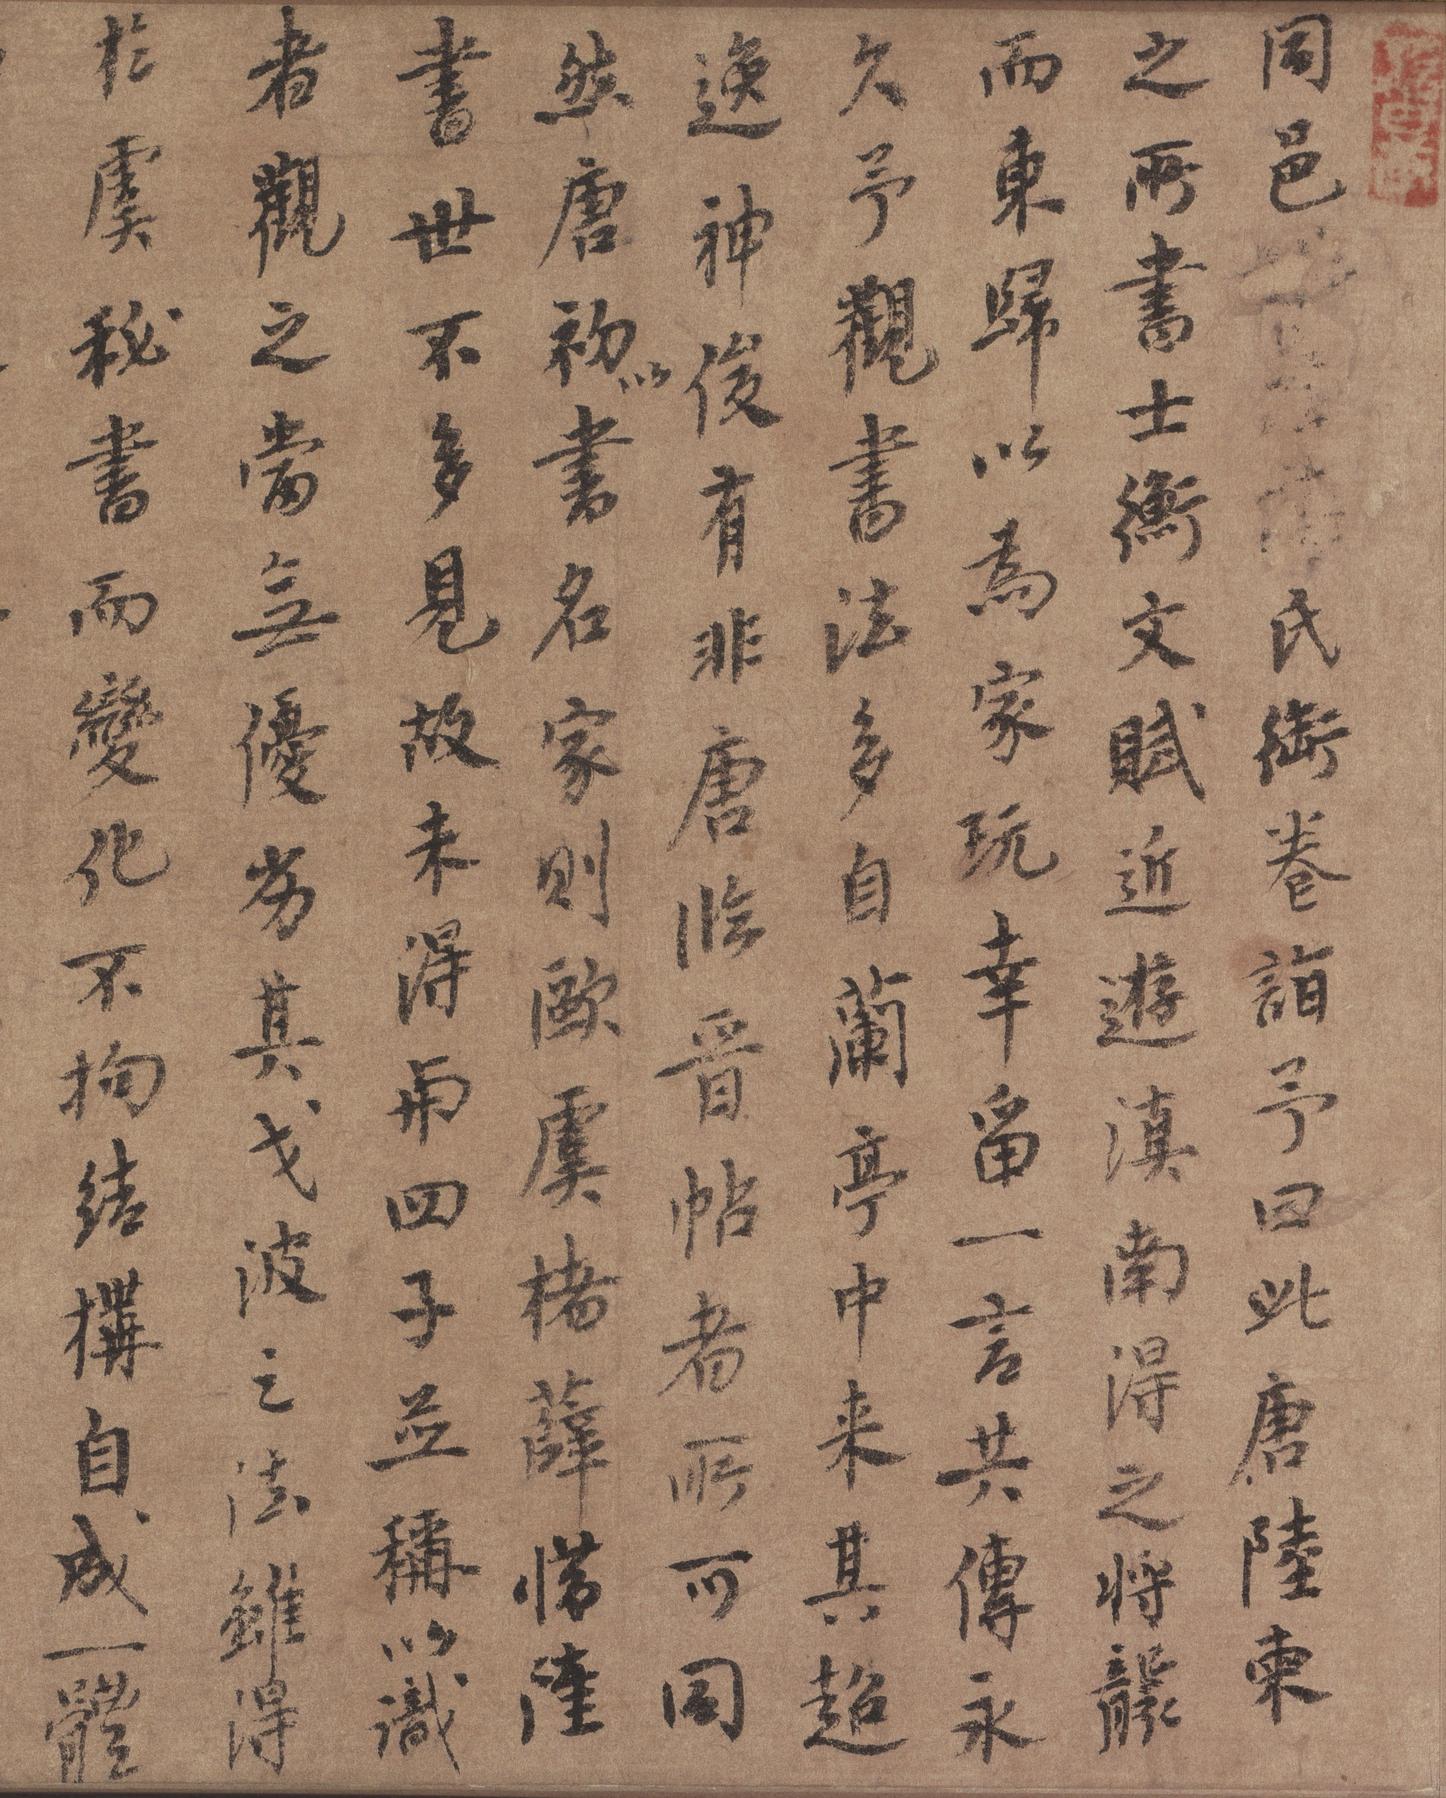 同邑氏衘卷詣予曰此唐陸柬
之所書士衡文賦近遊滇南得之將襲
而東歸以為家玩幸留一言共傳永
久予觀書法多自蘭亭中来其超
逸神俊有非唐臨晉帖者所可同
然唐初以書名家則歐虞楮薛惜陸
書世不多見故未得與四子並稱以識
者觀之當無優劣其戈波之法雖得
於虞秘書而變化不拘結構自成一體